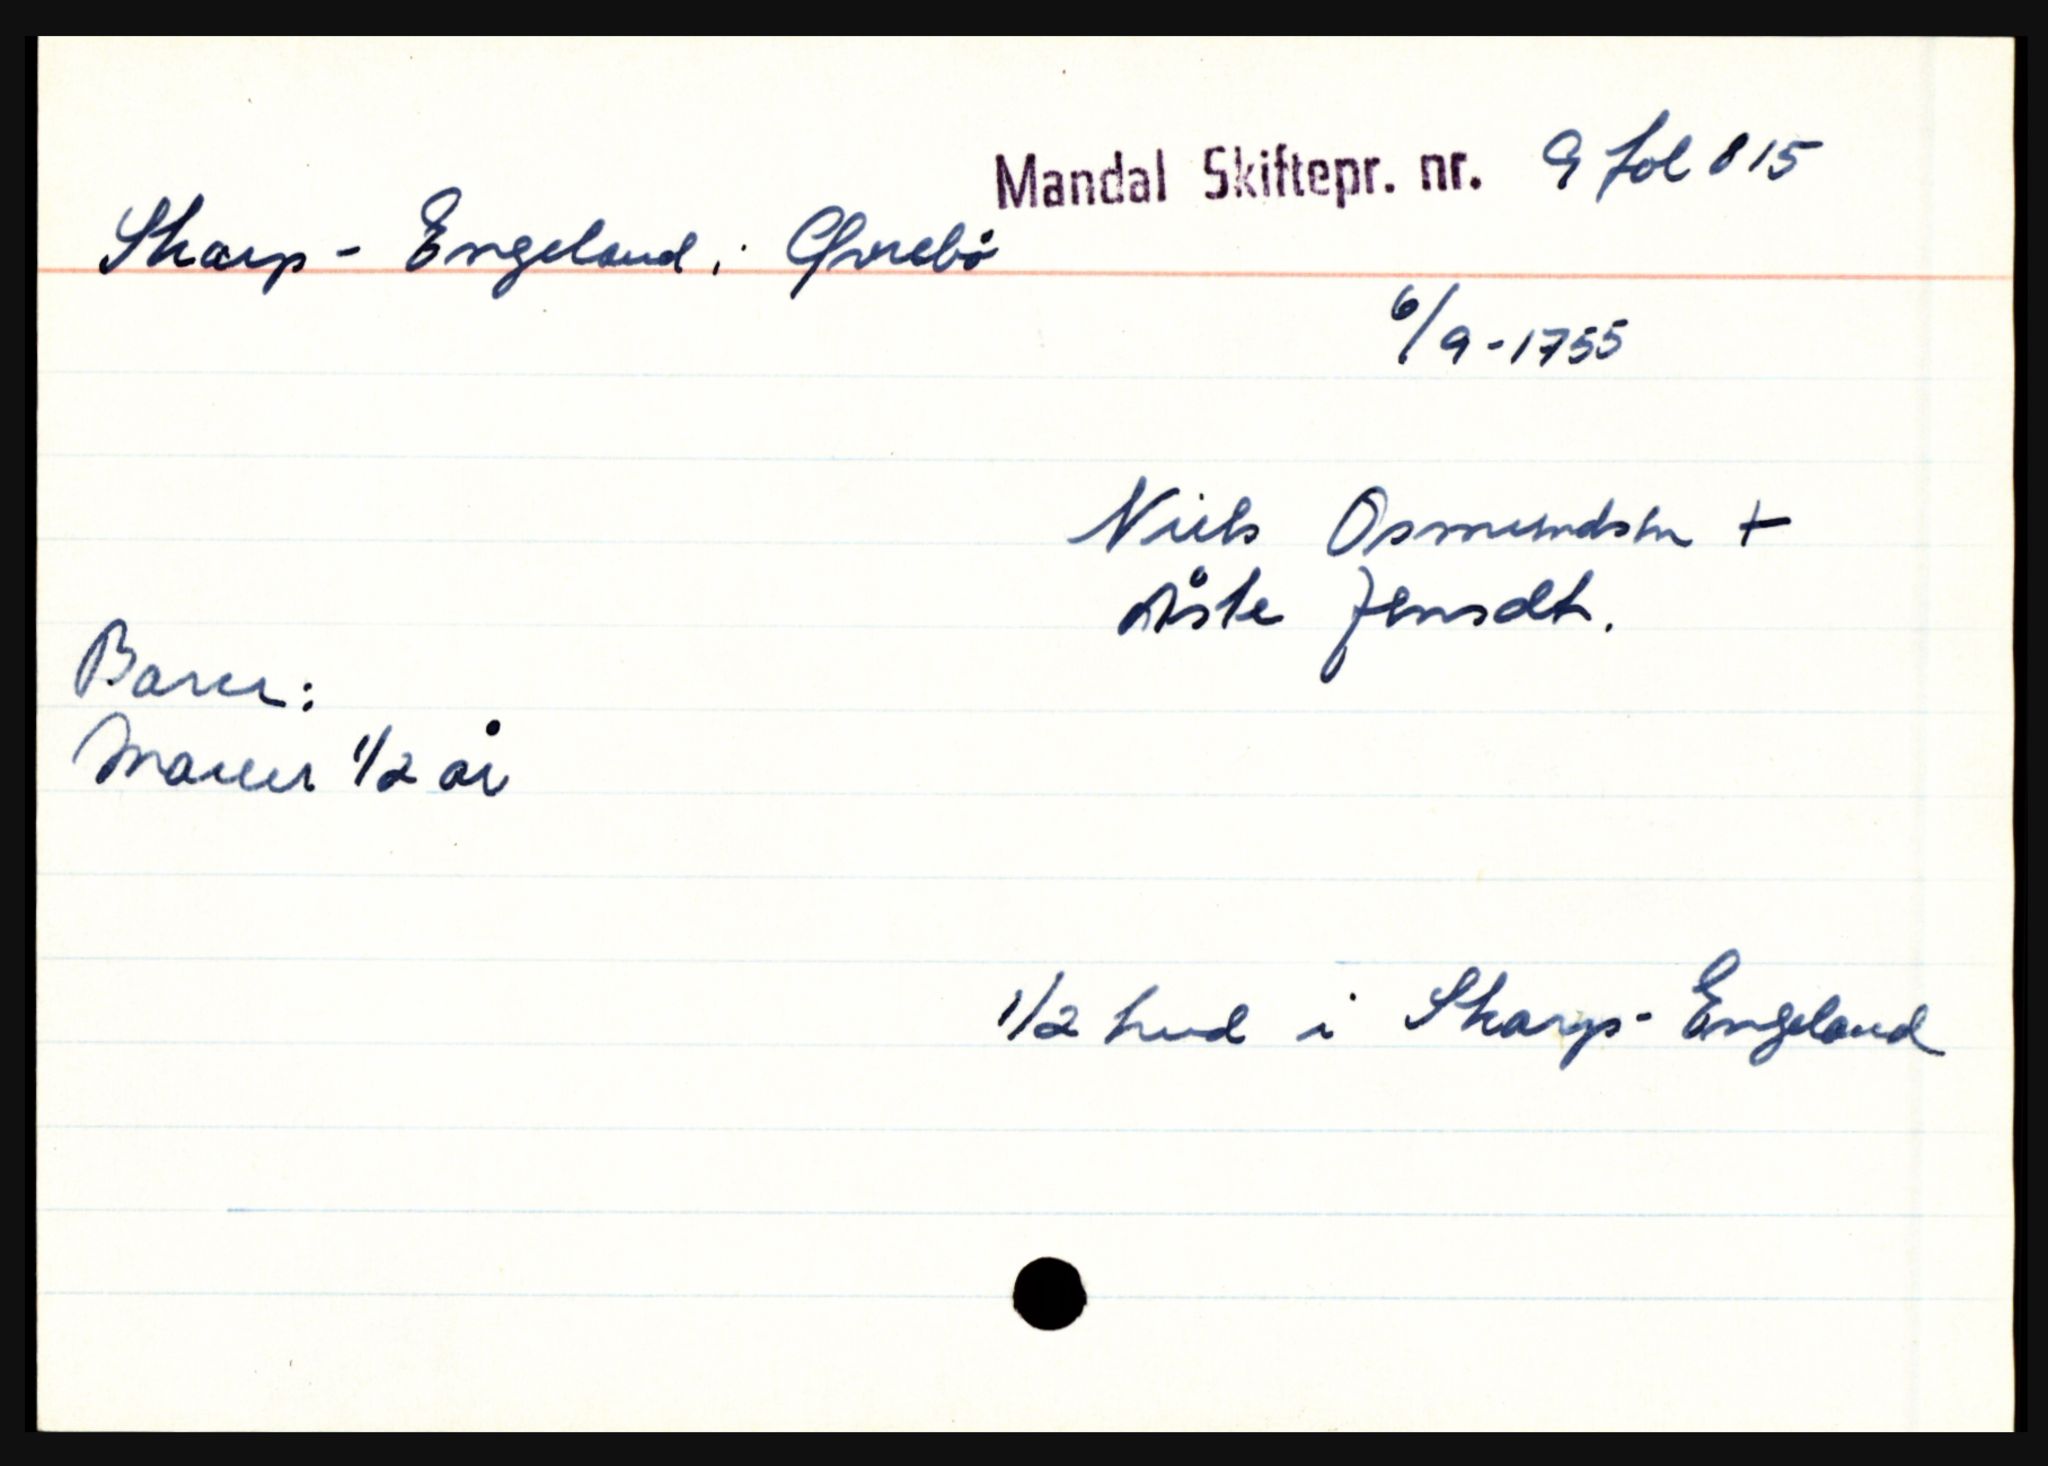 Mandal Skiftepr. nr. 9 fol 815
Skarp - Engeland, Øvrebö
6/9-1755
Niels Osmundsen +
Åste Jensdt.
Barn:
Maren 1/2 år
1/2 hud i Skarp-Engeland